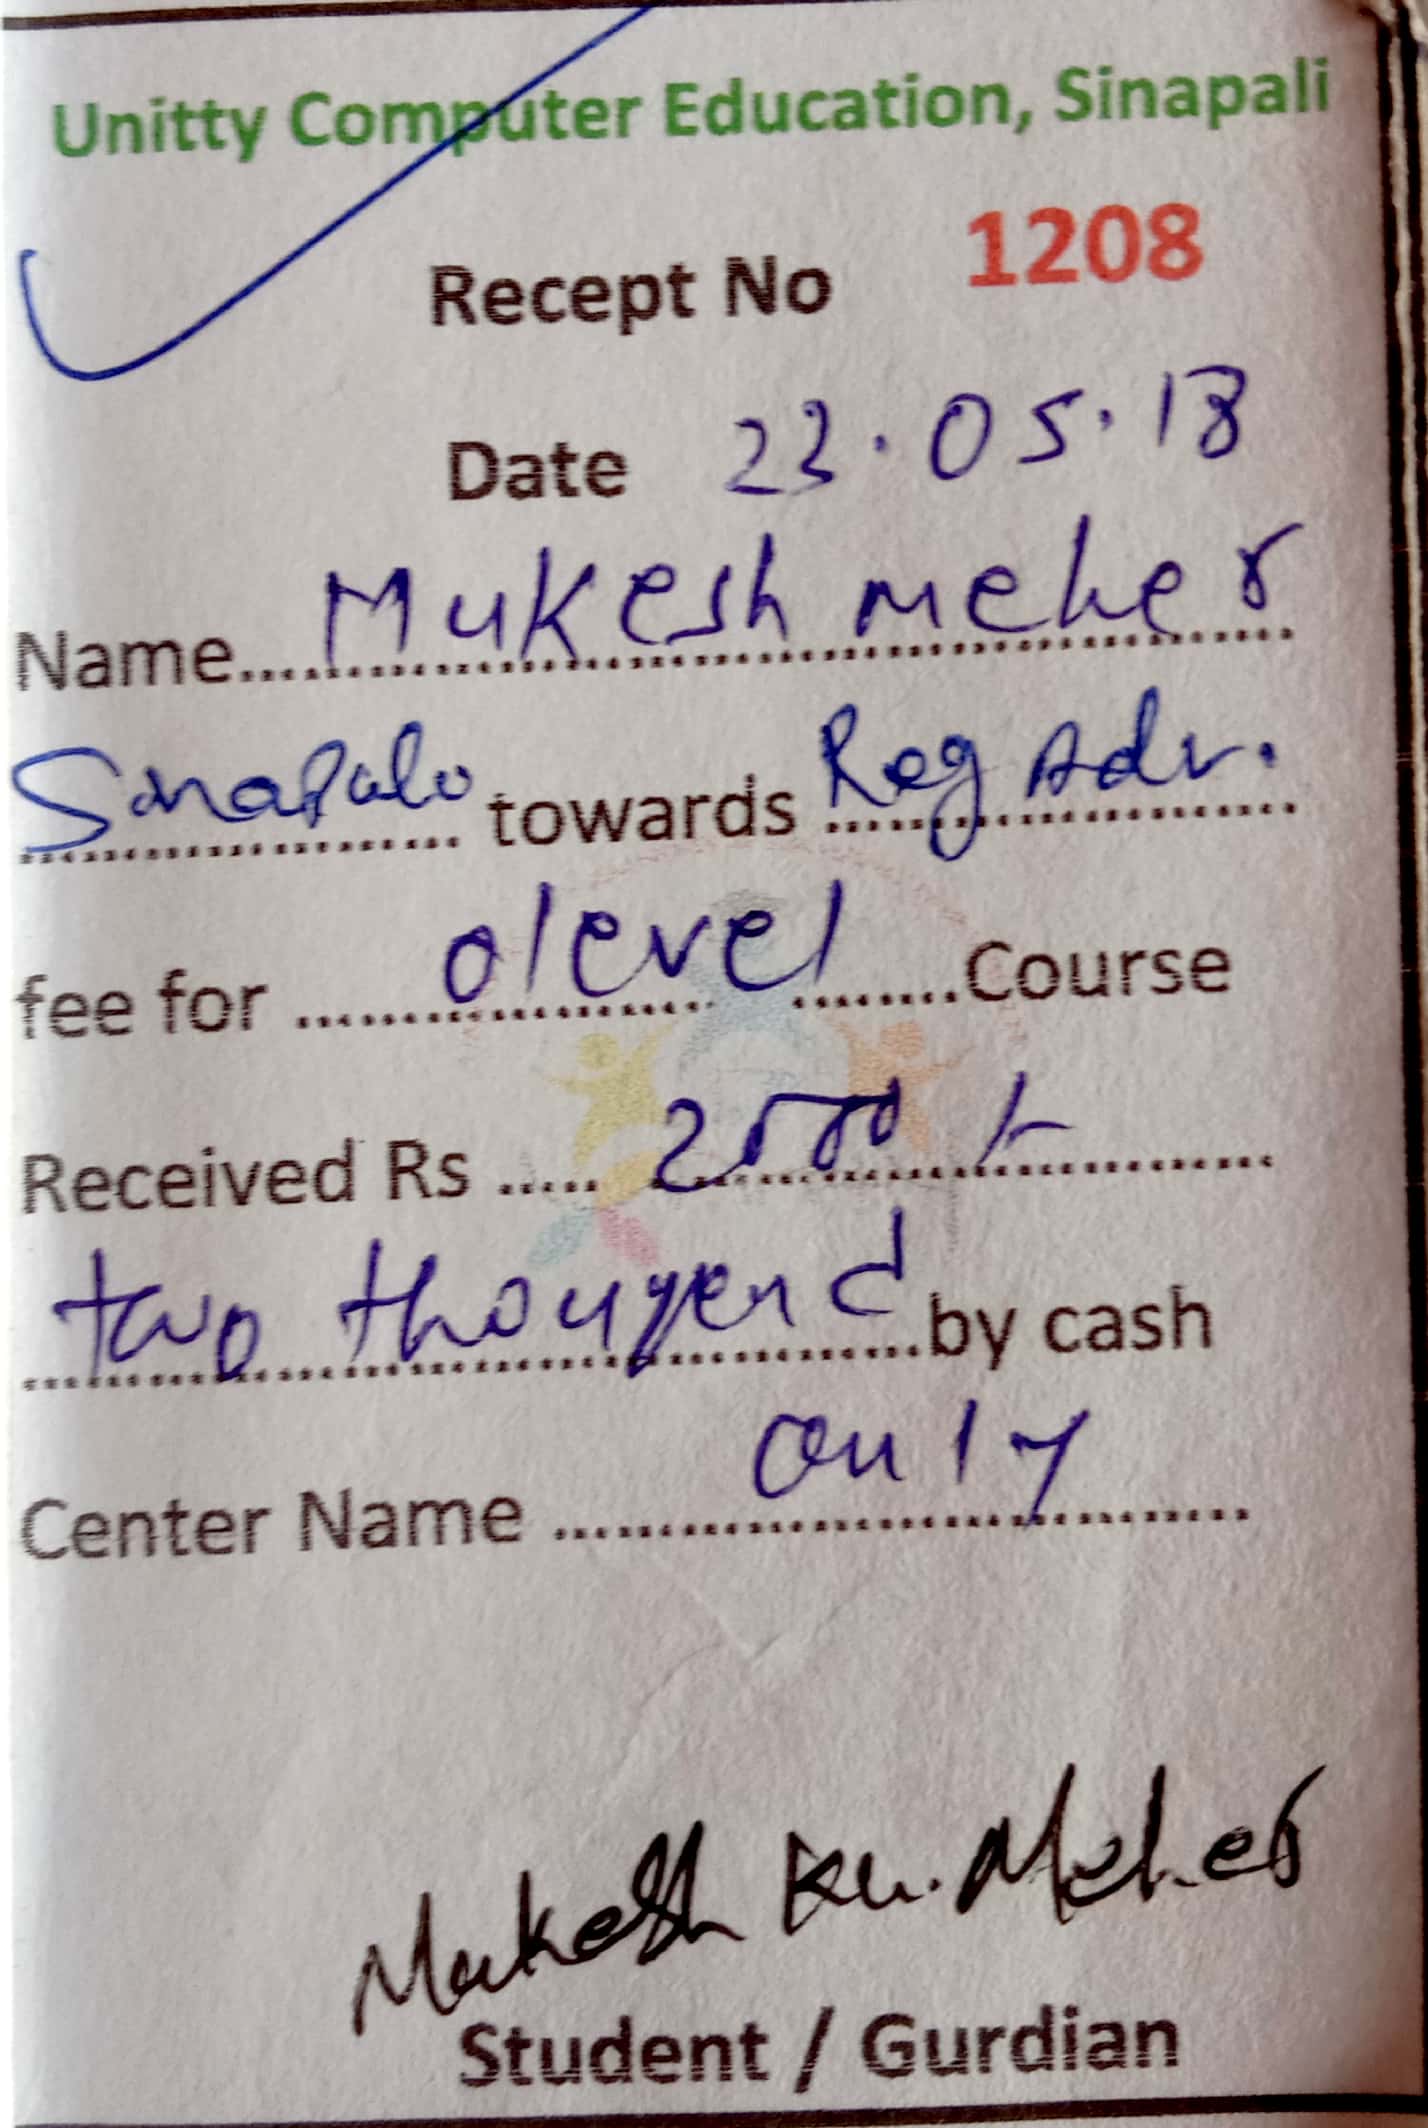 Unitty Computer Education, Sinapali
Recept No 1208
Date 23.05.18
Name.... Mukesh meher
Sinapali towards Reg Adv.
fee for olevel Course
Received Rs ..... 2000/-
two thousend by cash
only
Center Name ....................
Mukesh Ku. Meher
Student / Gurdian